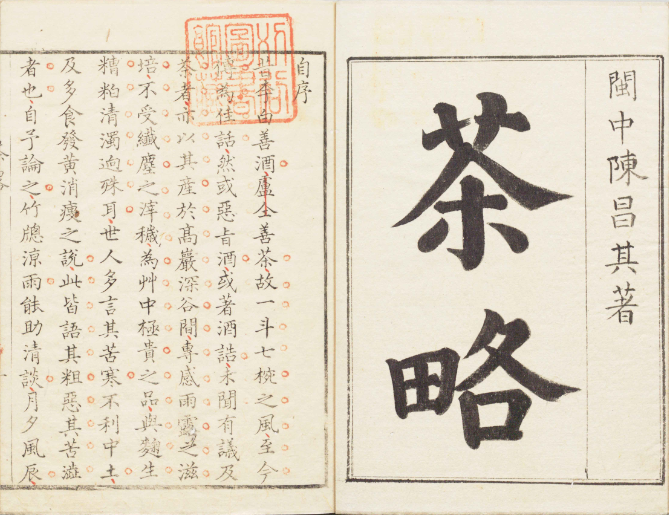 閩中陳昌其著
茶略
自序
昔李白善酒盧仝善茶故一斗七椀之風至今
傳為佳話然或惡旨酒或著酒誥未聞有議及
茶者亦以其產於高巖深谷間專感雨露之滋
培不受纖塵之滓穢為艸中極貴之品與麯生
糟粕清濁逈殊耳世人多言其苦寒不利中土
及多食發黃消瘦之說此皆語其粗惡其苦澁
者也自予論之竹牕涼雨能助清談月夕風辰